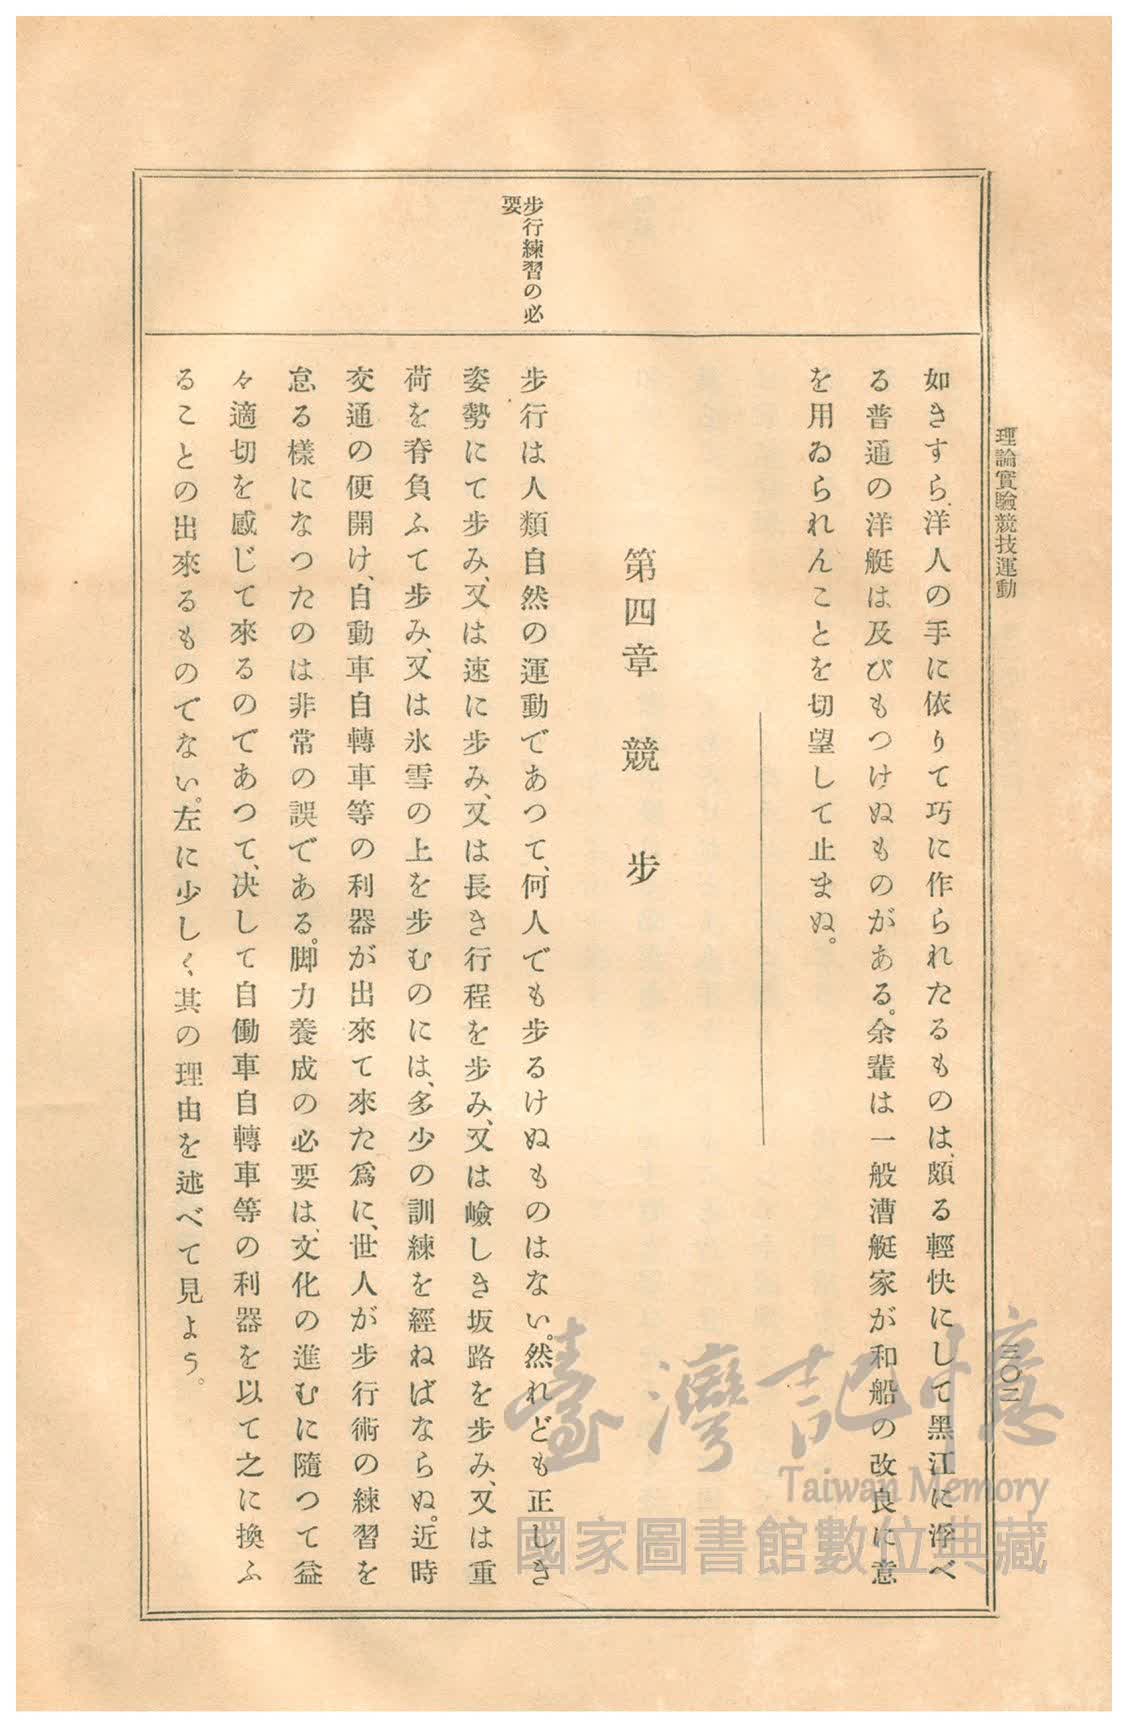 理論實驗競技運動
三〇二
如きすら、洋人の手に依りて巧に作られたるものは、頗る輕快にして黑江に浮べ
る普通の洋艇は及びもつけぬものがある。余輩は一般漕艇家が和船の改良に意
を用ゐられんことを切望して止まぬ。
第四章 競步
步行練習の必
要
步行は人類自然の運動であつて、何人でも步るけぬものはない。然れども正しき
姿勢にて步み、又は速に步み、又は長き行程を步み、又は嶮しき坂路を步み、又は重
荷を脊負ふて步み、又は氷雪の上を步むのには、多少の訓練を經ねばならぬ。近時
交通の便開け、自動車自轉車等の利器が出來て來た爲に、世人が步行術の練習を
怠る樣になつたのは非常の誤である。脚力養成の必要は、文化の進むに隨つて益
々適切を感じて來るのであつて、決して自働車自轉車等の利器を以て之に換ふ
ることの出來るものでない。左に少しく其の理由を述べて見よう。
臺灣記憶
Taiwan Memory
國家圖書館數位典藏